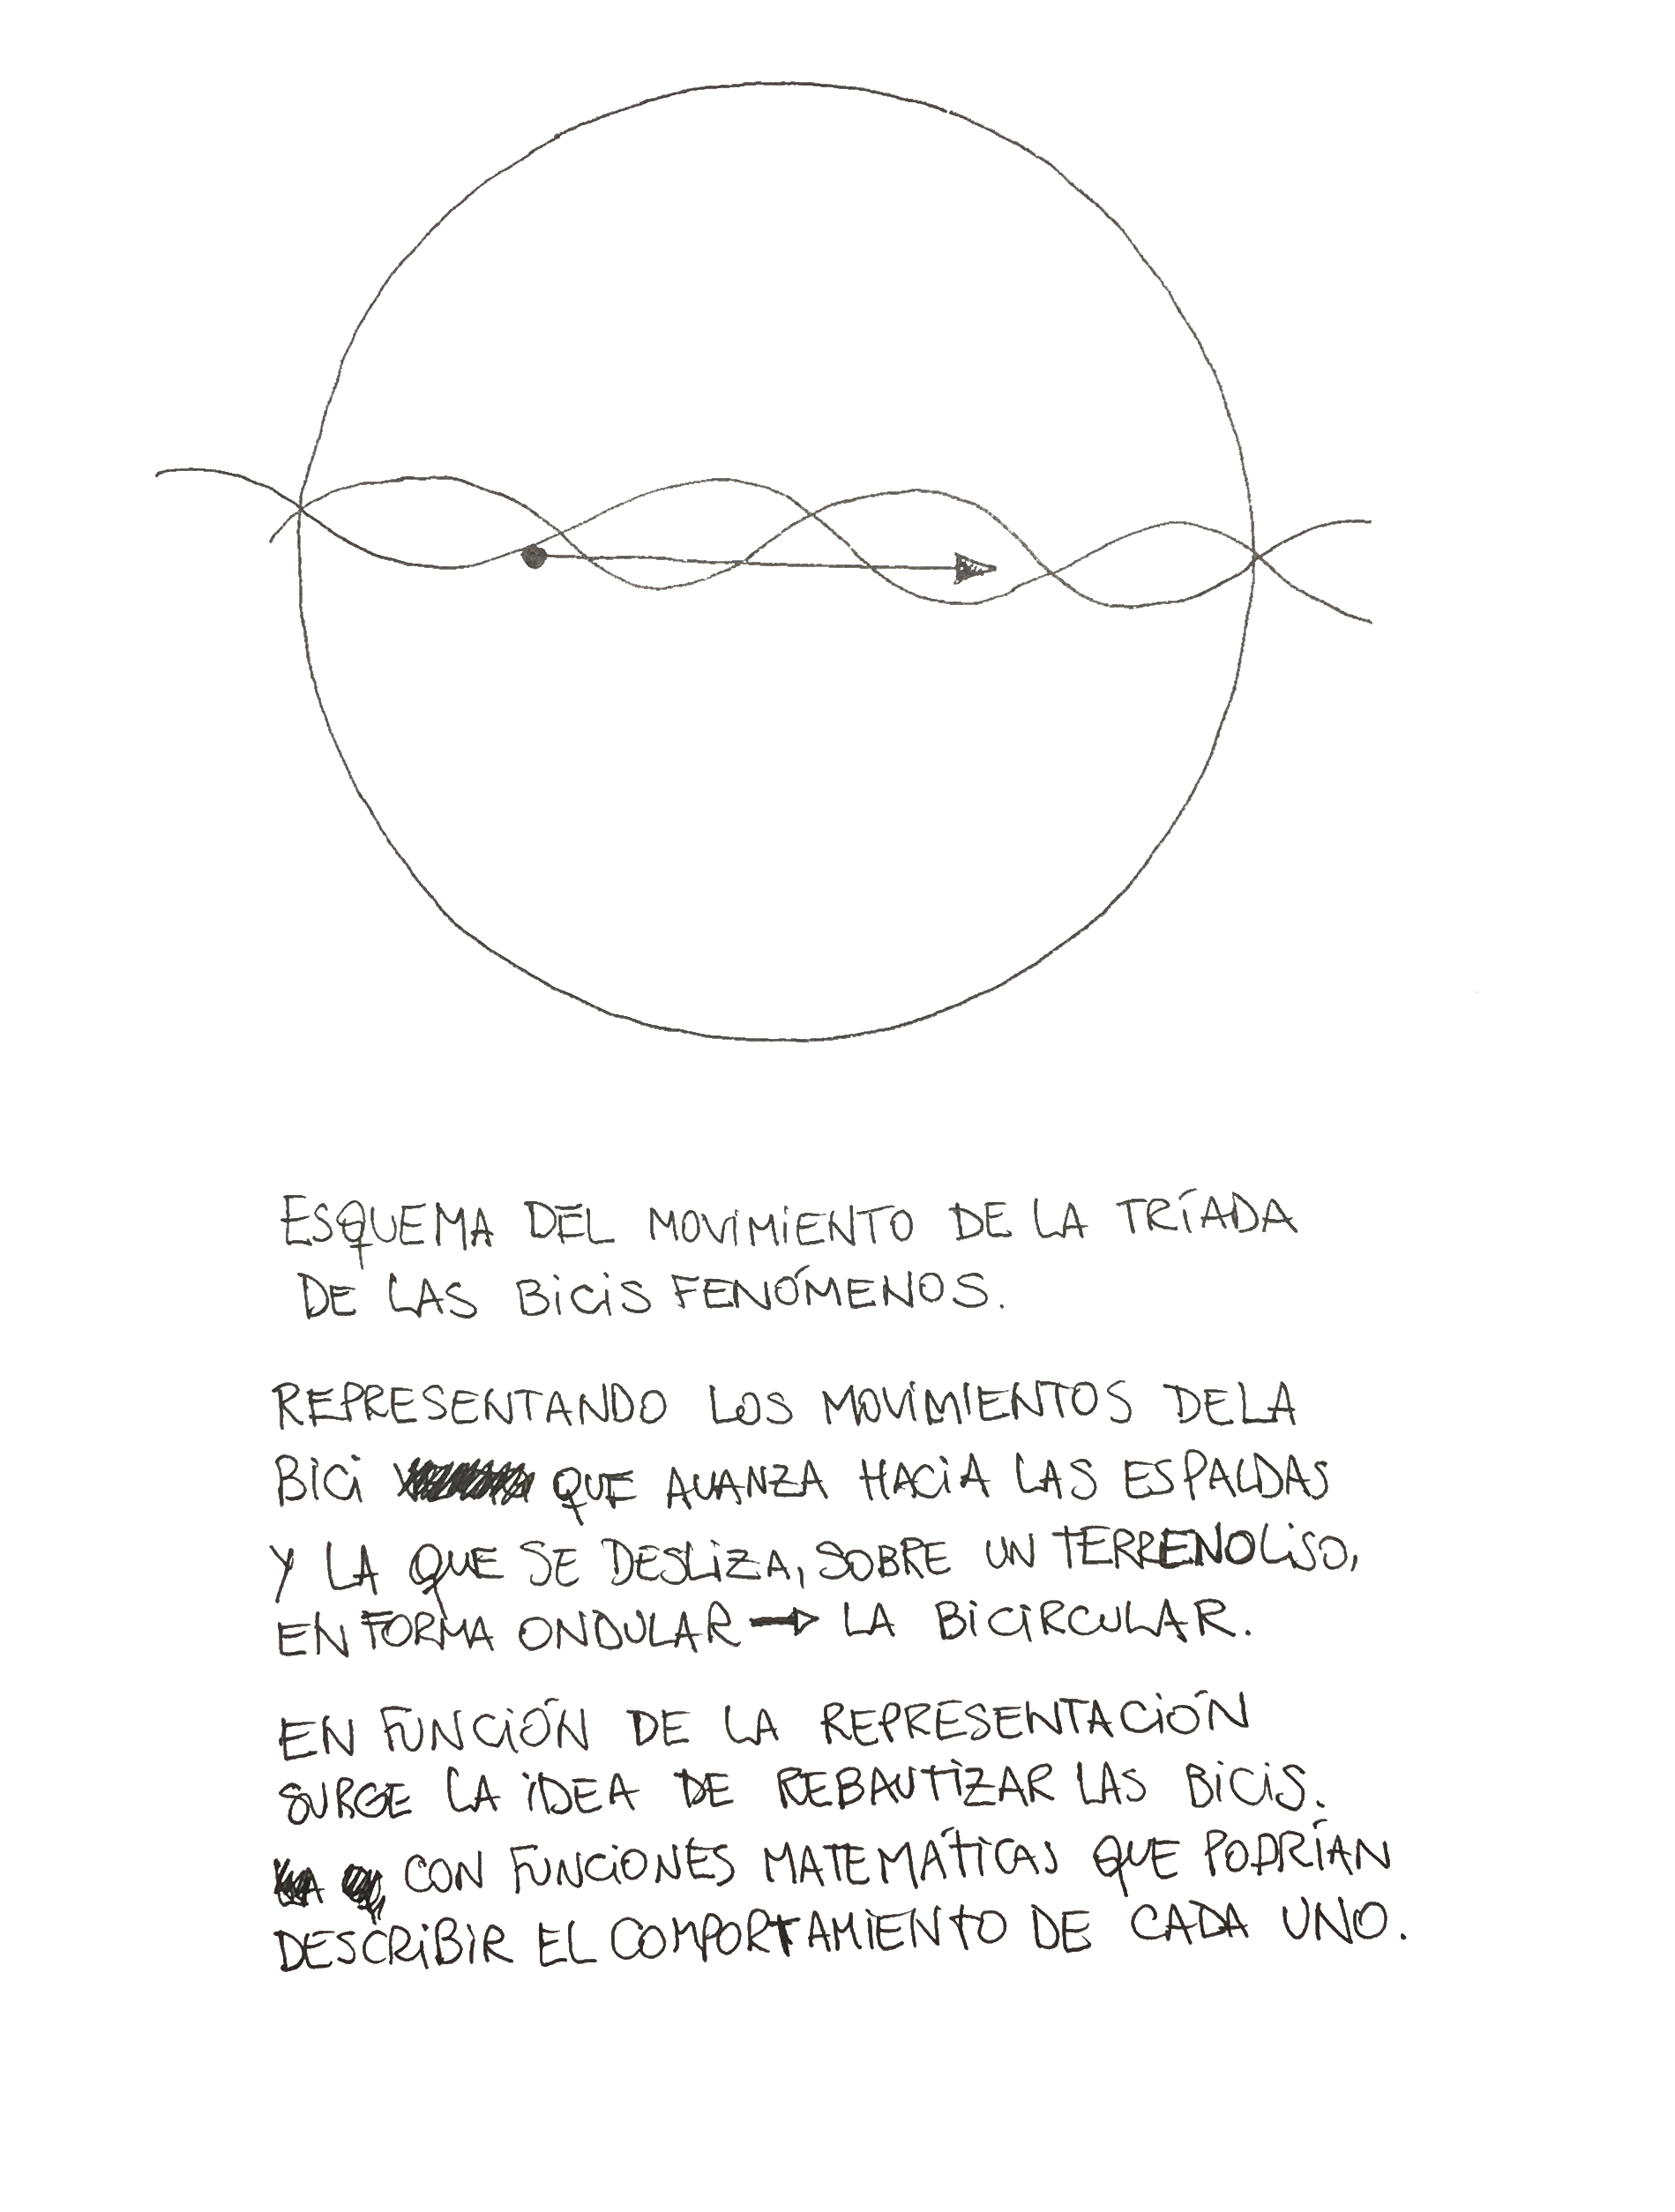 ESQUEMA DEL MOVIMIENTO DE LA TRÍADA
DE LAS BICIS FENÓMENOS.
REPRESENTANDO LOS MOVIMIENTOS DE LA
BICI QUE AVANZA HACIA LAS ESPALDAS
Y LA QUE SE DESLIZA, SOBRE UN TERRENO LISO,
EN FORMA ONDULAR → LA BICIRCULAR.
EN FUNCIÓN DE LA REPRESENTACIÓN
SURGE LA IDEA DE REBAUTIZAR LAS BICIS.
CON FUNCIONES MATEMÁTICAS QUE PODRÍAN
DESCRIBIR EL COMPORTAMIENTO DE CADA UNO.